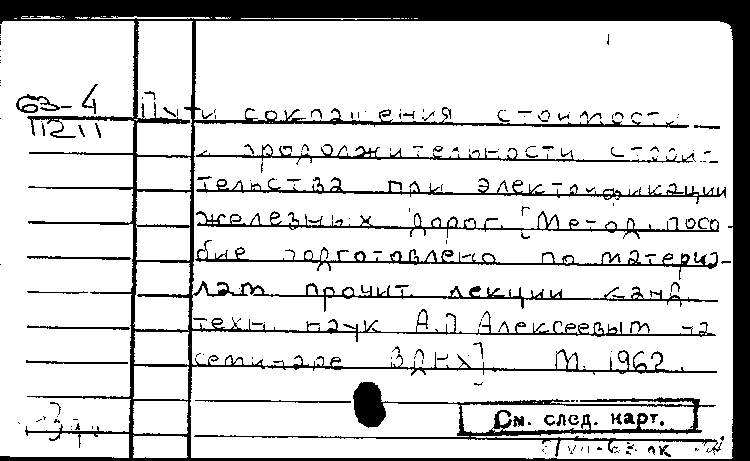 63-4
11211
Пути сокращения стоимости
и продолжительности строи-
тельства при электрификации
железных дорог. [Метод. посо-
бие подготовлено по материа-
лам прочит. лекции канд.
техн. наук А.П. Алексеевым на
семинаре ВДНХ]. М. 1962.
См. след. карт.